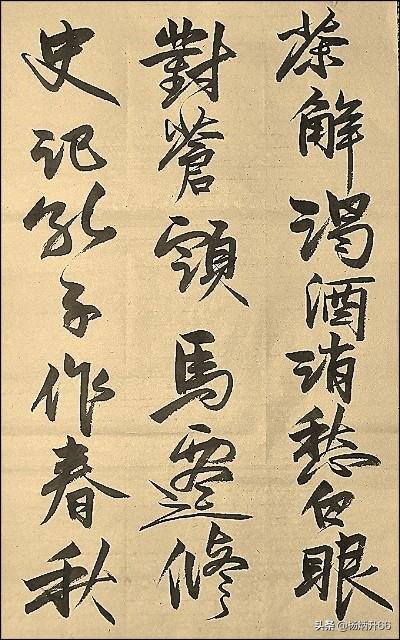 茶解渴酒消愁白眼
對蒼頭馬遷修
史記孔子作春秋
头条 @杨炳升66